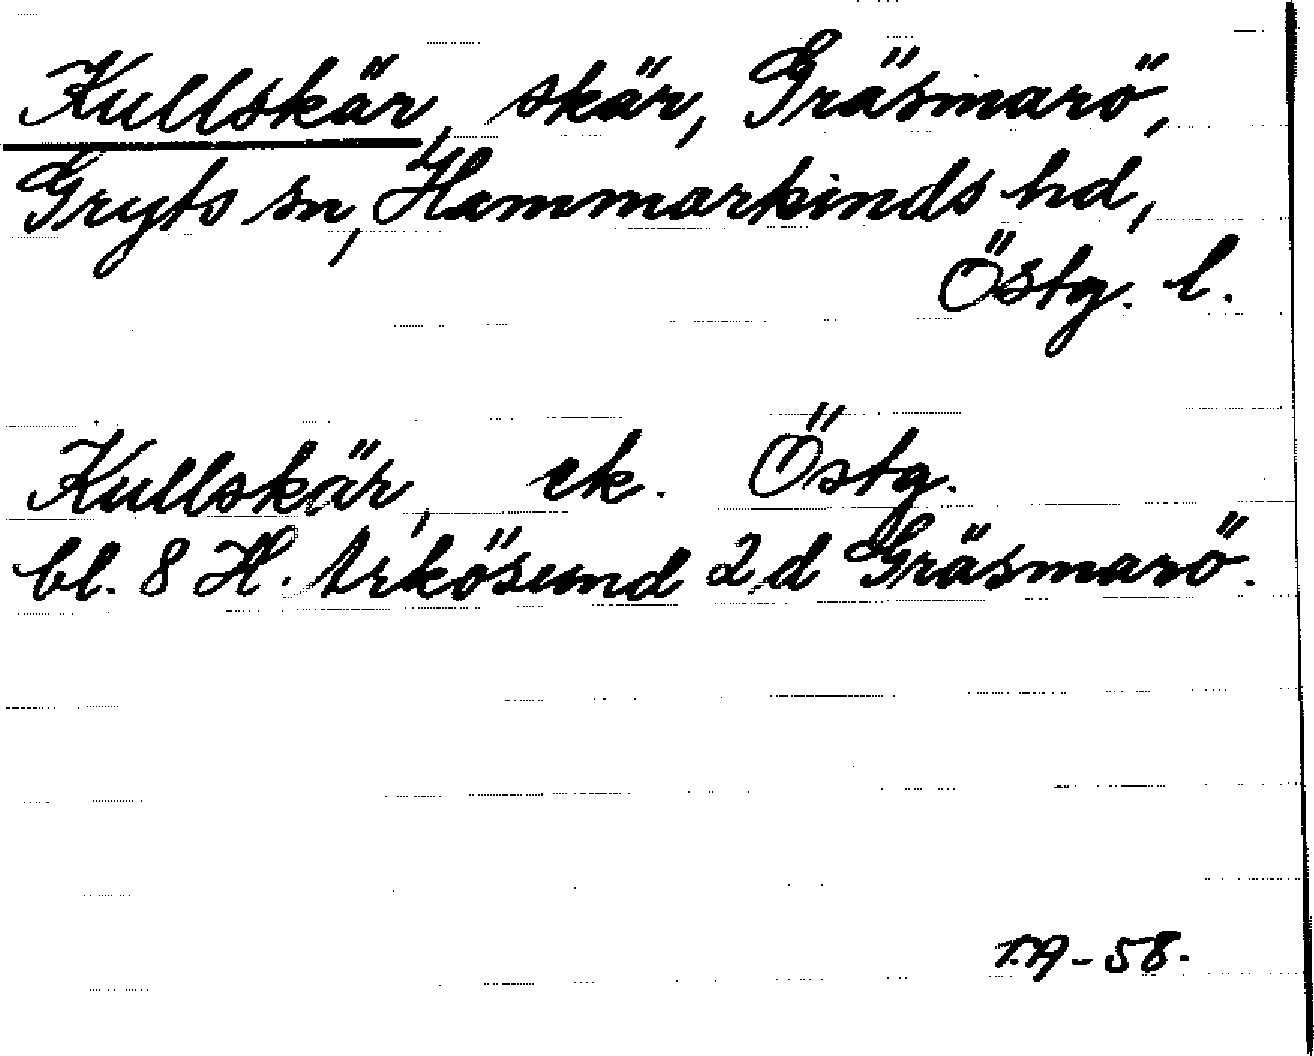 Kullskär, skär, Gräsmarö,
Gryts sn, Hammarkinds hd,
Östg. l.
Kullskär, ek. Östg.
bl. 8 H. Arkösund 2,d Gräsmarö.
T.A-58.